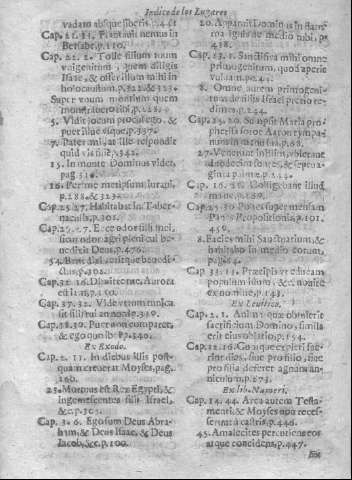 Indice de los Lugares
vadam absque liberis. p.451
Cap. 21. 33. Plantauit nemus in
Bersabe. p.110.
Cap. 22. 2. Tolle filium tuum
vnigenitum, quem diligis
Isaac, & offer illum mihi in
holocaustum. p.322. & 323.
Super vnum montium quem
monstrauero tibi. p.
5. Vidit locum procul ego, &
puer illuc vsque. p.337.
7. Pater mi, at ille respondit
quid vis fili. 342.
15. In monte Dominus videt.
pag. 51
16. Per me metipsum iuraui,
p.288. & 323
Cap. 25 27. Habitabat in Taber
naculis. p.301.
Cap. 27. 27. Ecce odor filij mei,
sicut odor agri pleni cui be
nedixit Deus. p.476.
34. Benedixi
p.302.
Cap. 32 16. Dimitte me, Aurora
est iam. p.130.
Cap. 37. 32. Vide vtrum tunica
sit filij tui an non. p.319.
Cap. 38.30. Puer non comparet,
& ego quo ibo p.340.
Ex Exodo.
Cap. 2. 11. In diebus illis post-
quam creuerat Moyses, pag.
160.
23. Mortuus est Rex Egypti, &
ingemiscentes filij Israel,
&c. p.305.
Cap. 3. 6. Ego sum Deus Abra-
ham, & Deus Isaac, & Deus
Iacob, &c. p.100.
20. Apparuit Dominus in flam
ma ignis de medio rubi, p.
438.
Cap. 13. 2. Sanctifica mihi omne
primogenitum, quod aperit
vuluam. p.24.
8. Omne autem primogeni-
tum de filijs Israel pretio re
dimes. p.224.
Cap. 15. 20. Sumpsit Maria pro-
phetissa soror Aaron tympa-
num in manu sua, p.68.
27. Venerunt in Elim, vbi erant
duodecim fontes, & septua-
ginta palmæ. p.234.
Cap. 16. 16. Colligebant illud
mane. p.
Cap. 25. 30. Pones super mensam
Panes Propositionis, p.101.
450.
8. Facies mihi Sanctuarium, &
habitabo in medio eorum,
p.
Cap. 33. 12. Præcipis vt educam
populum istum, & noui te
ex nomine, p.143.
Ex Leuitico.
Cap. 2. 1. Anima quæ obtulerit
sacrificium Domino, simila
erit eius oblatio, p.154.
Cap. 12. 6. Cumque expleti fue
rint dies, siue pro filio, siue
pro filia deferet agnum an-
niculum p.273.
Ex lib. Numeri.
Cap. 14. 44. Arca autem Testa-
menti, & Moyses non reces-
serunt à castris p.446.
45. Amalecites percutiens eos
atque concidens, p.447.